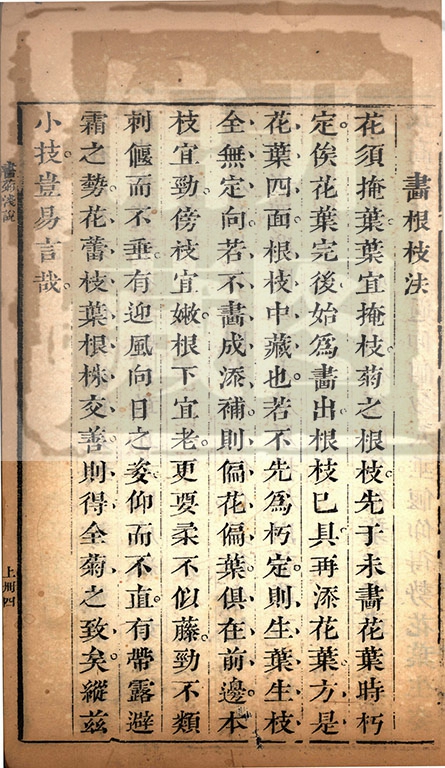 畫根枝法
花須掩葉葉宜掩枝菊之根枝先于未畫花葉時朽
定俟花葉完後始爲畫出根枝已具再添花葉方是
花葉四面根枝中藏也若不先爲朽定則生葉生枝
全無定向若不畫成添補則偏花偏葉俱在前邊本
枝宜勁傍枝宜嫩根下宜老更要柔不似藤勁不類
刺偃而不垂有迎風向日之姿仰而不直有帶露避
霜之勢花蕾枝葉根株交善則得全菊之致矣縱茲
小技豈易言哉
畫菊淺說
上冊四